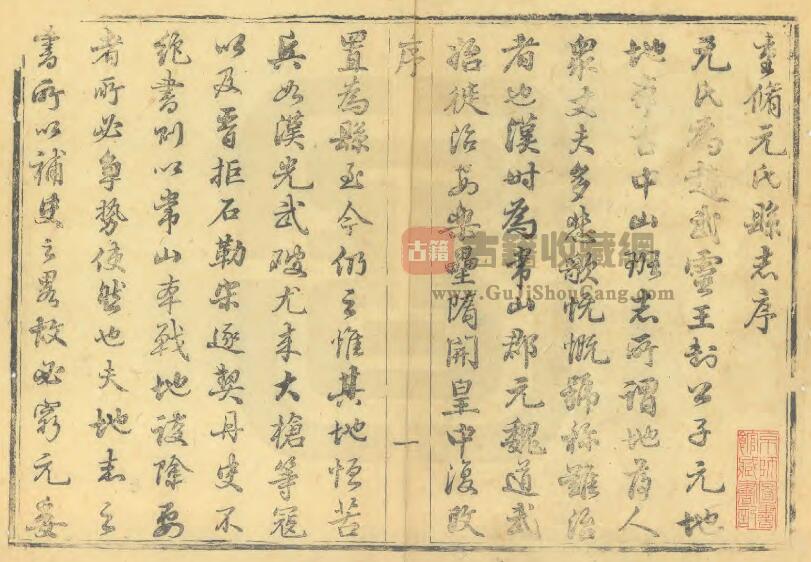 重脩元氏縣志序
元氏為趙武靈王封公子元地
地章古中山班志所謂地薄人
眾丈夫多悲歌忼慨號稱難治
者也漢時為常山郡元魏道武
始徙治安樂壘隋開皇中復改
序
一
置為縣至今仍之惟其地恒苦
兵如漢光武破尤来大槍等寇
以及晋拒石勒宋逐契丹史不
絶書則以常山车戰地設除要
者所必争勢使然也夫地志之
書所以補史之畧故必窮元委
古籍
古籍收藏網
www.GuJiShouCang.com